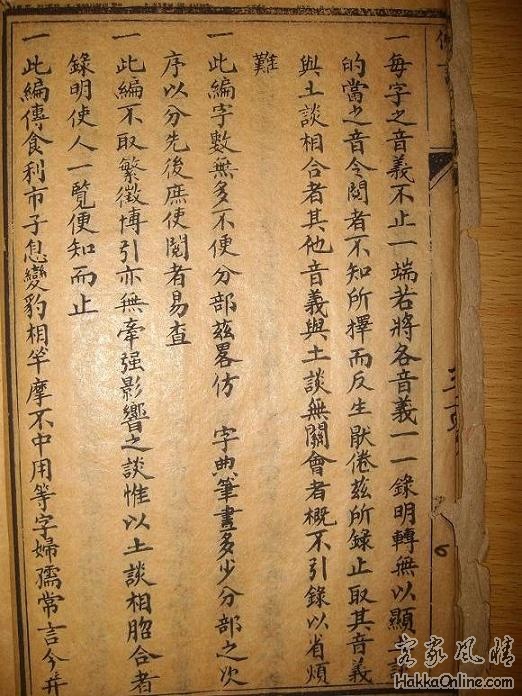 一每字之音義不止一端若將各音義一一錄明轉無以顯土談
的當之音令閱者不知所擇而反生厭倦兹所錄止取其音義
與土談相合者其他音義與土談無關會者概不引錄以省煩
難
一此編字數無多不便分部兹畧仿 字典筆畫多少分部之次
序以分先後庶使閱者易查
一此編不取繁徵博引亦無牽强影響之談惟以土談相脗合者
錄明使人一覽便知而止
一此編傳食利市子息變豹相竿摩不中用等字婦孺常言今并
客家風情
HakkaOnline.com